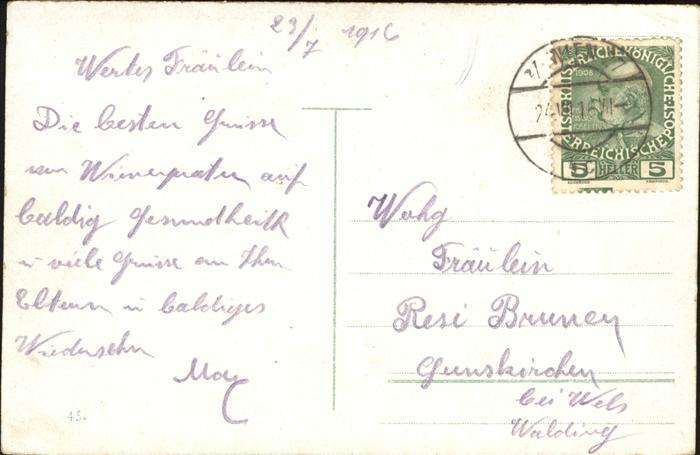 23/7 1916
Wertes Fräulein
Die besten Grüsse
von Wienerpraten auf
baldig Gesundheitk
u viele Grüsse an Ihre
Eltern u baldiges
Wiedersehn
Max
45.
WIEN
KAISERLICHE KÖNIGLICHE
ÖSTERREICHISCHE POST
1908
5 HELLER 5
Wohg
Fräulein
Resi Bruney
Gunskirchen
bei Wels
Walding